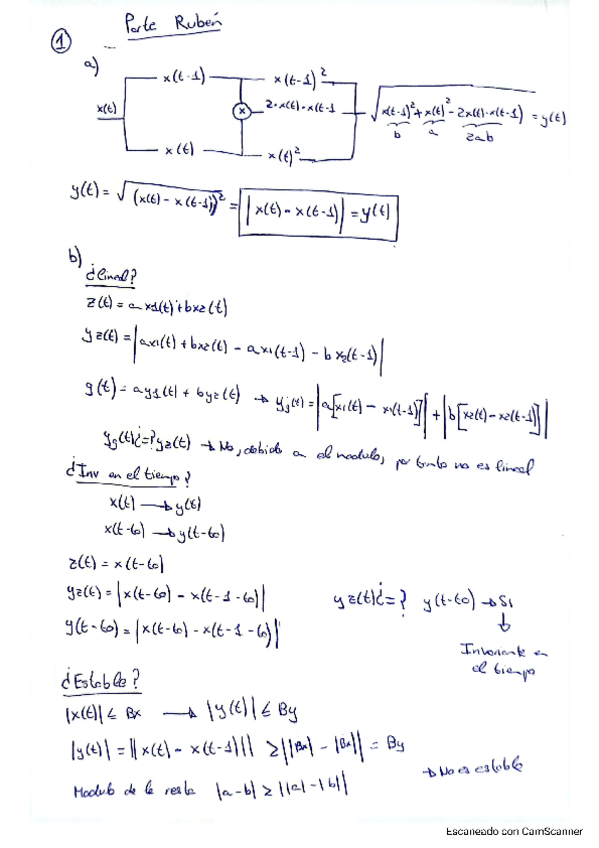 Parte Rubén
1
a)
x(t-1) x(t-1)²
x(t) x 2·x(t)·x(t-1 √x(t-1)²+x(t)²-2x(t)·x(t-1) = y(t)
b a 2ab
x(t) x(t)²
y(t) = √(x(t) - x(t-1))² = |x(t) - x(t-1)| = y(t)
b)
¿Lineal?
z(t) = ax1(t) + bx2(t)
yz(t) = |ax1(t) + bx2(t) - ax1(t-1) - bx2(t-1)|
g(t) = ay1(t) + by2(t) → yg(t) = |a[x1(t) - x1(t-1)]| + |b[x2(t) - x2(t-1)]|
yg(t)¿=?yz(t) → No, debido a el modulo, por tanto no es lineal
¿Inv en el tiempo?
x(t) → y(t)
x(t-to) → y(t-to)
z(t) = x(t-to)
yz(t) = |x(t-to) - x(t-1-to)| yz(t)¿=? y(t-to) → Si
y(t-to) = |x(t-to) - x(t-1-to)|
Invariante en
el tiempo
¿Estable?
|x(t)| ≤ Bx → |y(t)| ≤ By
|y(t)| = ||x(t) - x(t-1)|| ≥ ||Bx| - |Bx|| = By
→ No es estable
Modulo de la resta |a-b| ≥ ||a|-|b||
Escaneado con CamScanner